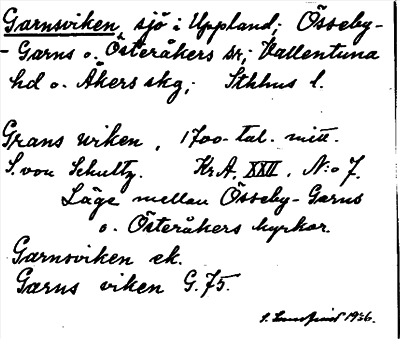 Garnsviken, sjö i Uppland; Össeby-
-Garns o. Österåkers sr; Vallentuna
hd o. Åkers skg; Sthlms l.
Grans wiken, 1700-tal. mitt.
S. von Schultz. Kr.A. XXII. N:o 7.
Läge mellan Össeby-Garns
o. Österåkers kyrkor.
Garnsviken ek.
Garns viken G. 75.
1936.